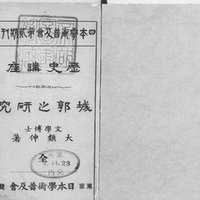 日本學術普及會第貳期刊
歷史講座
城郭之研究
文學博士
大類伸著
全
11.23
東京 日本學術普及會